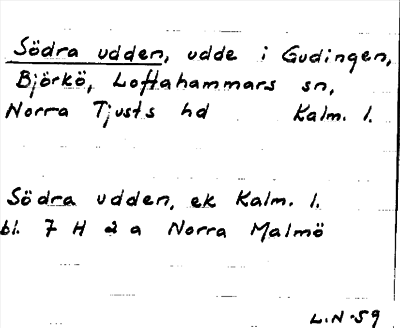 Södra udden, udde i Gudingen,
Björkö, Loftahammars sn,
Norra Tjusts hd Kalm. l.
Södra udden, ek Kalm. l.
bl. 7 H 2 a Norra Malmö
L.N-59